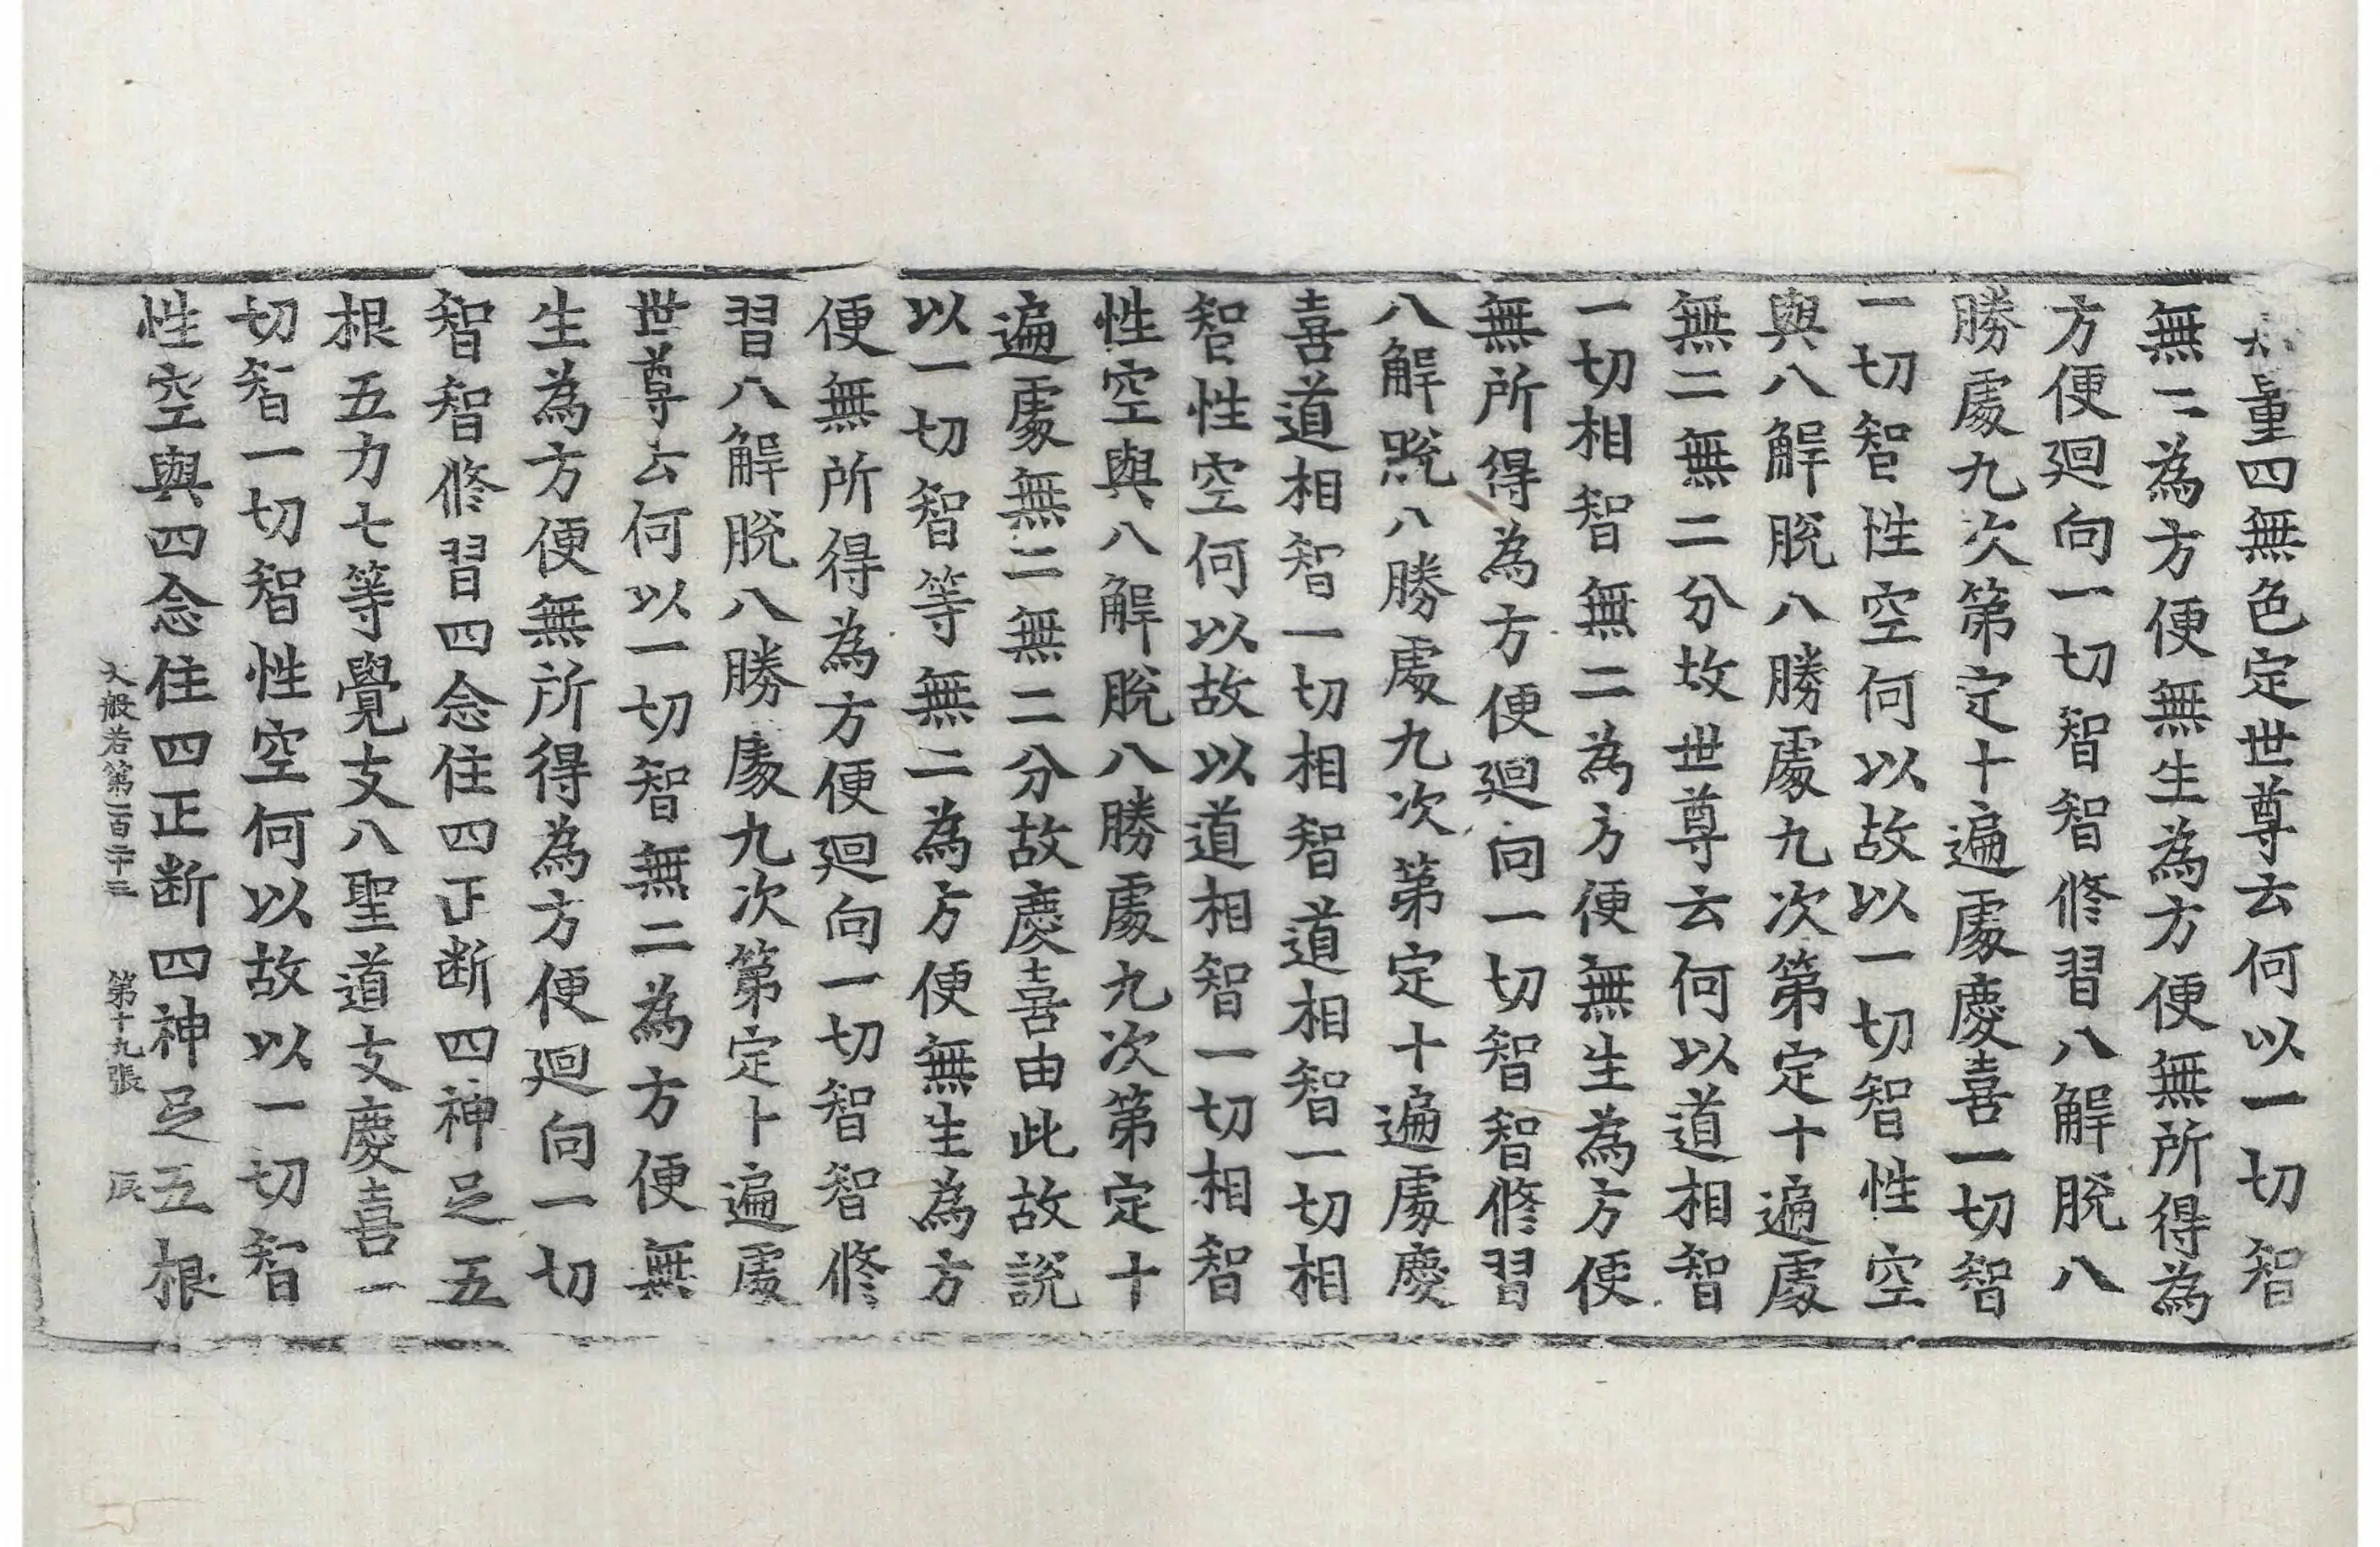 量四無色定世尊云何以一切智
無二為方便無生為方便無所得為
方便迴向一切智智修習八解脫八
勝處九次第定十遍處慶喜一切智
一切智性空何以故以一切智性空
與八解脫八勝處九次第定十遍處
無二無二分故世尊云何以道相智
一切相智無二為方便無生為方便
無所得為方便迴向一切智智修習
八解脫八勝處九次第定十遍處慶
喜道相智一切相智道相智一切相
智性空何以故以道相智一切相智
性空與八解脫八勝處九次第定十
遍處無二無二分故慶喜由此故說
以一切智等無二為方便無生為方
便無所得為方便迴向一切智智修
習八解脫八勝處九次第定十遍處
世尊云何以一切智無二為方便無
生為方便無所得為方便迴向一切
智智修習四念住四正断四神足五
根五力七等覺支八聖道支慶喜一
切智一切智性空何以故以一切智
性空與四念住四正断四神足五根
大般若第一百二十三 第十九張 辰